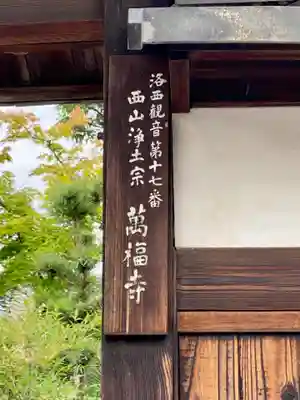 洛西觀音第十七番
西山浄土宗
萬福寺